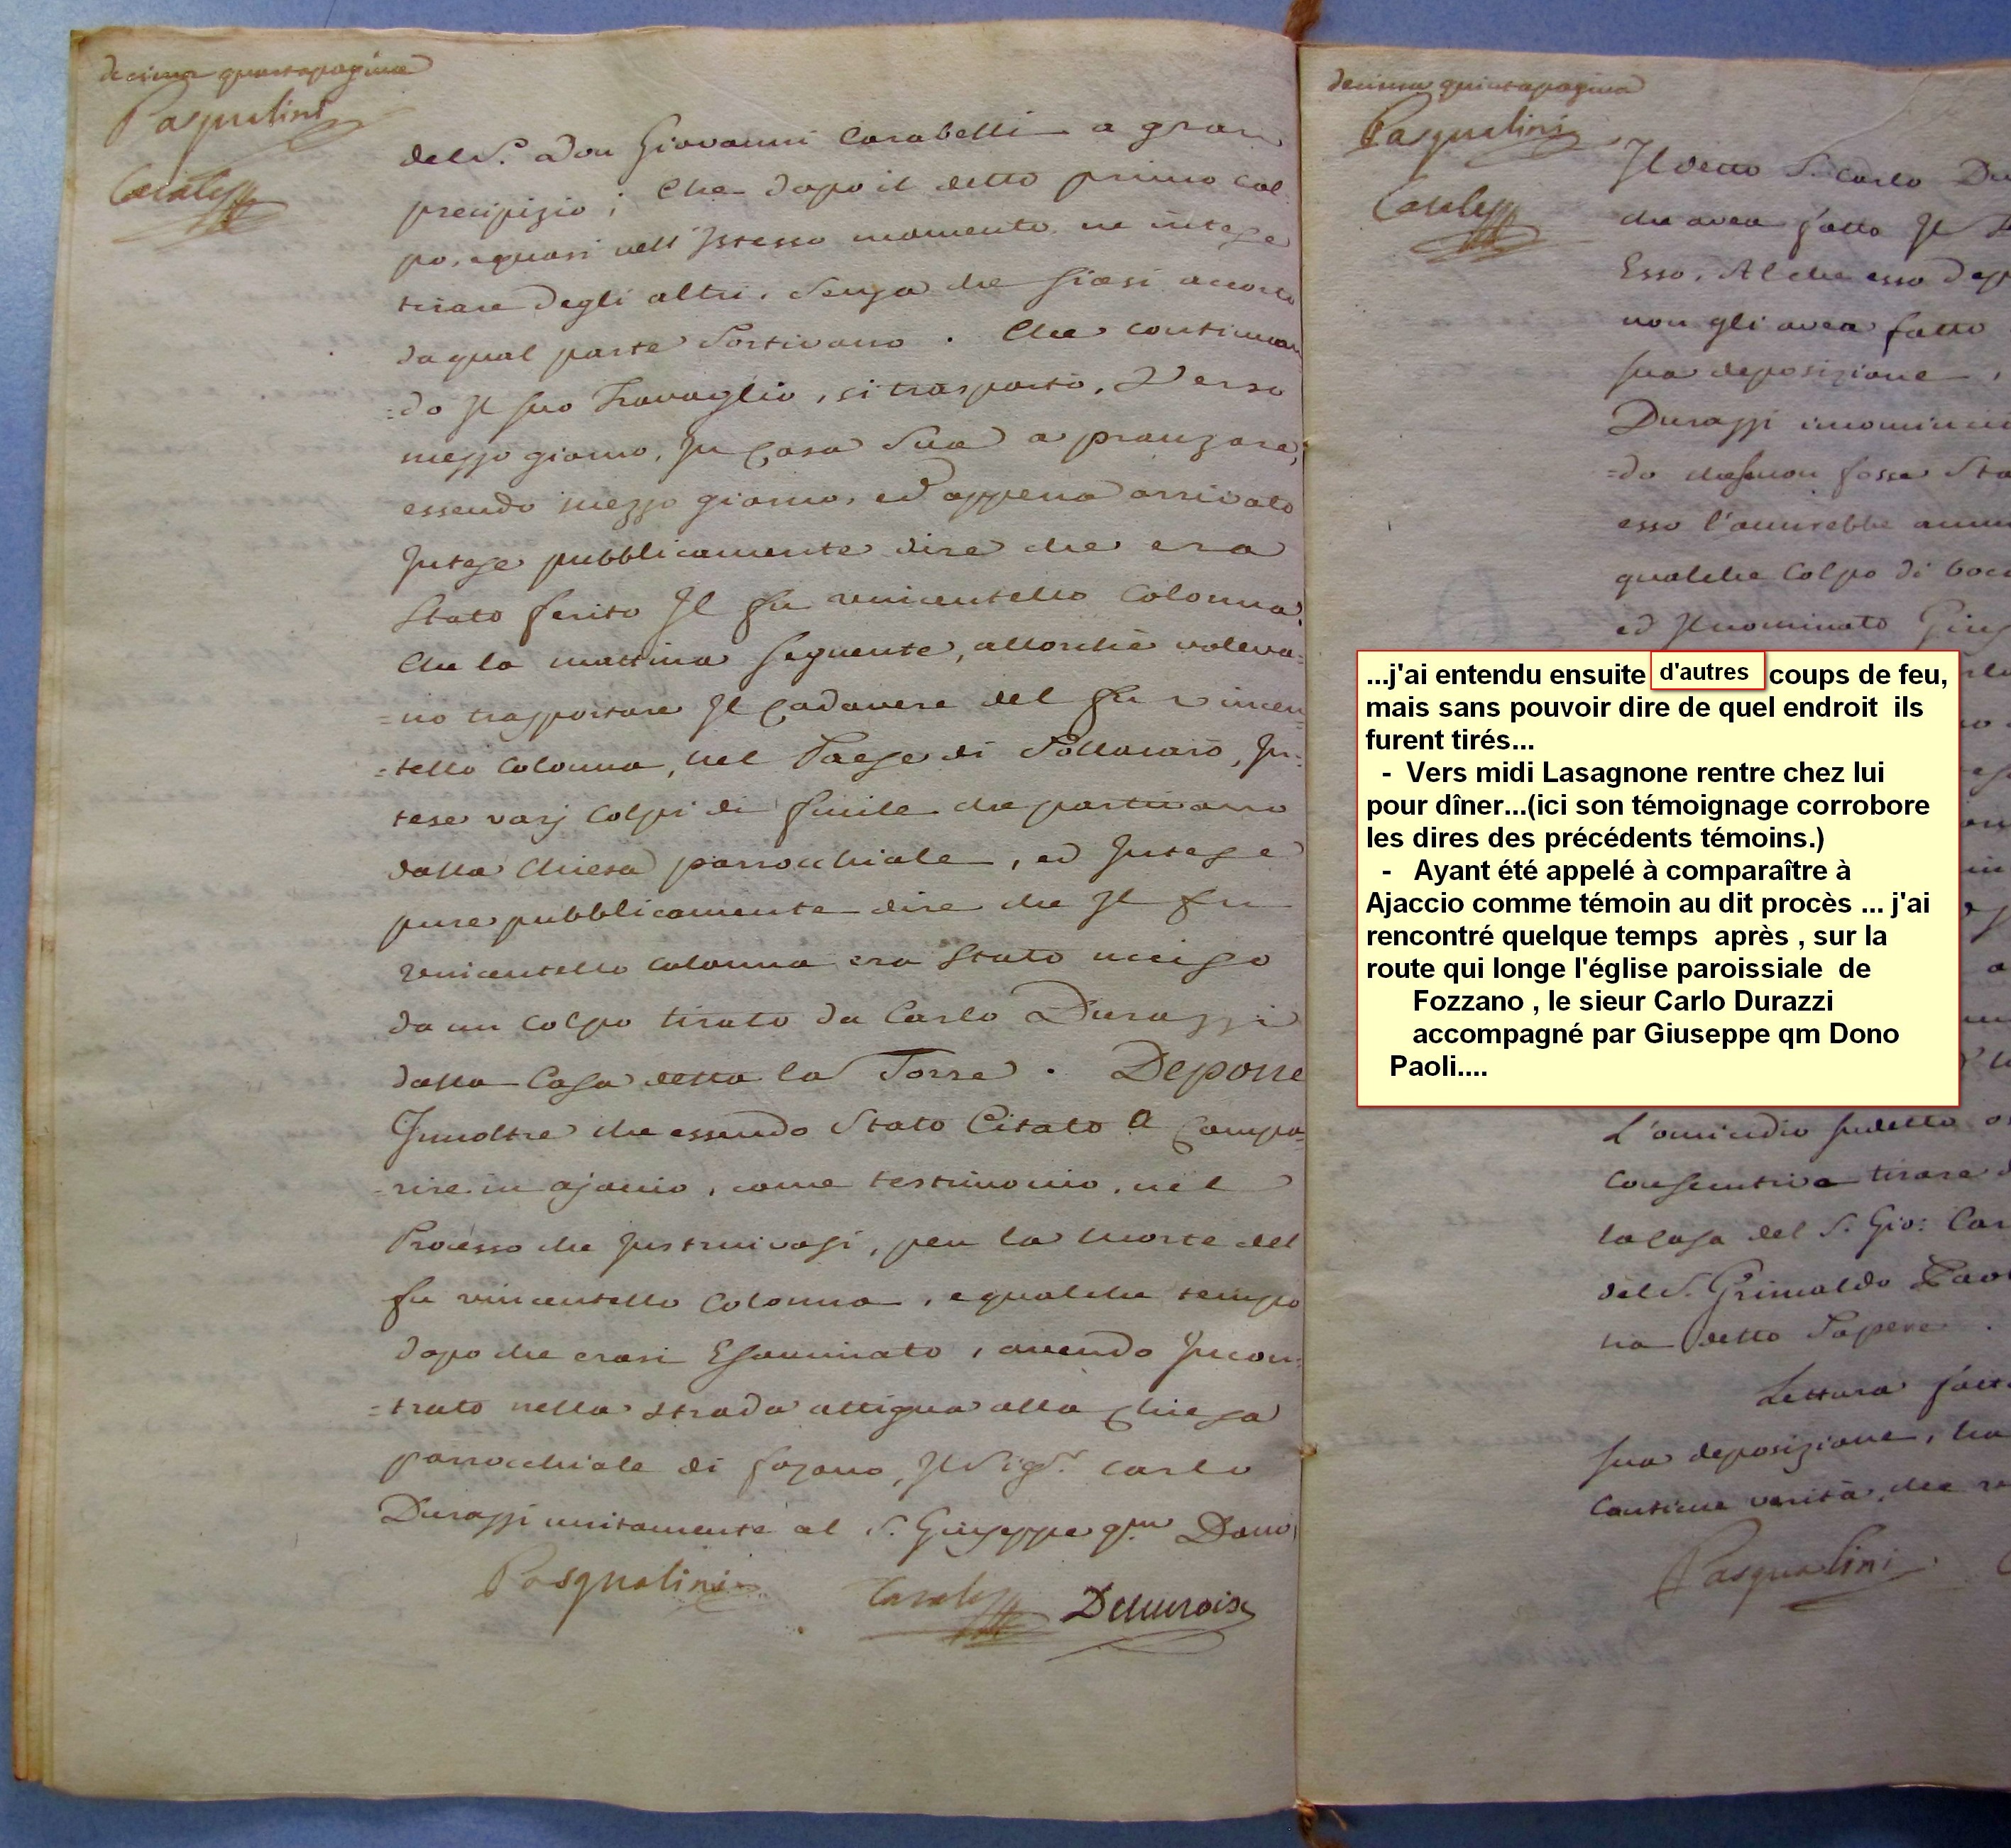 decima quarta pagina
Pasqualini
del S.r Don Giovanni Carabelli a gran
precipizio; Che dopo il detto primo col
po, e quasi nell'Istesso momento ne intese
tirare degli altri, senza che siasi accorto
da qual parte sortivano. Che continuan
=do Il suo Travaglio, si trasportò, verso
mezzo giorno, In Casa Sua a pranzare,
essendo mezzo giorno, ed appena arrivato
Intese pubblicamente dire che era
Stato ferito Il fu vincentello Colonna.
Che la mattina seguente, allorchè voleva=
=no trasportare Il Cadavere del fu vincen=
=tello Colonna, nel Paese di Sollacarò, In=
tese varj Colpi di fucile che partivano
dalla Chiesa parrocchiale, ed Intese
pure pubblicamente dire che Il fu
vincentello Colonna era Stato ucciso
da un Colpo tirato da Carlo Durazzi
dalla Casa detta la Torre. Depone
Innoltre che essendo Stato Citato a Compa=
=rire in ajaccio, come testimonio, nel
Processo che Instruivasi, per la Morte del
fu vincentello Colonna, e qualche tempo
dopo che erasi Esaminato, avendo Incon=
=trato nella strada attigua alla Chiesa
parrocchiale di fozano, Il Sig.r Carlo
Durazzi unitamente al S. Giuseppe qm Dono
Pasqualini
decima quinta pagina
Pasqualini
Il detto S. Carlo
che avea fatto Il
Esso. Al che esso
non gli avea fatto
sua deposizione,
Durazzi
=do che non fosse
esso l'avrebbe
qualche Colpo di
ed Il nominato
...j'ai entendu ensuite d'autres coups de feu,
mais sans pouvoir dire de quel endroit ils
furent tirés...
- Vers midi Lasagnone rentre chez lui
pour dîner...(ici son témoignage corrobore
les dires des précédents témoins.)
- Ayant été appelé à comparaître à
Ajaccio comme témoin au dit procès ... j'ai
rencontré quelque temps après , sur la
route qui longe l'église paroissiale de
Fozzano , le sieur Carlo Durazzi
accompagné par Giuseppe qm Dono
Paoli....
L'omicidio sudetto
Consecutiva tirare
la Casa del S. Gio:
del S. Grimaldo
detto
Lettura
sua deposizione, ha
Contiene verità, che
Pasqualini